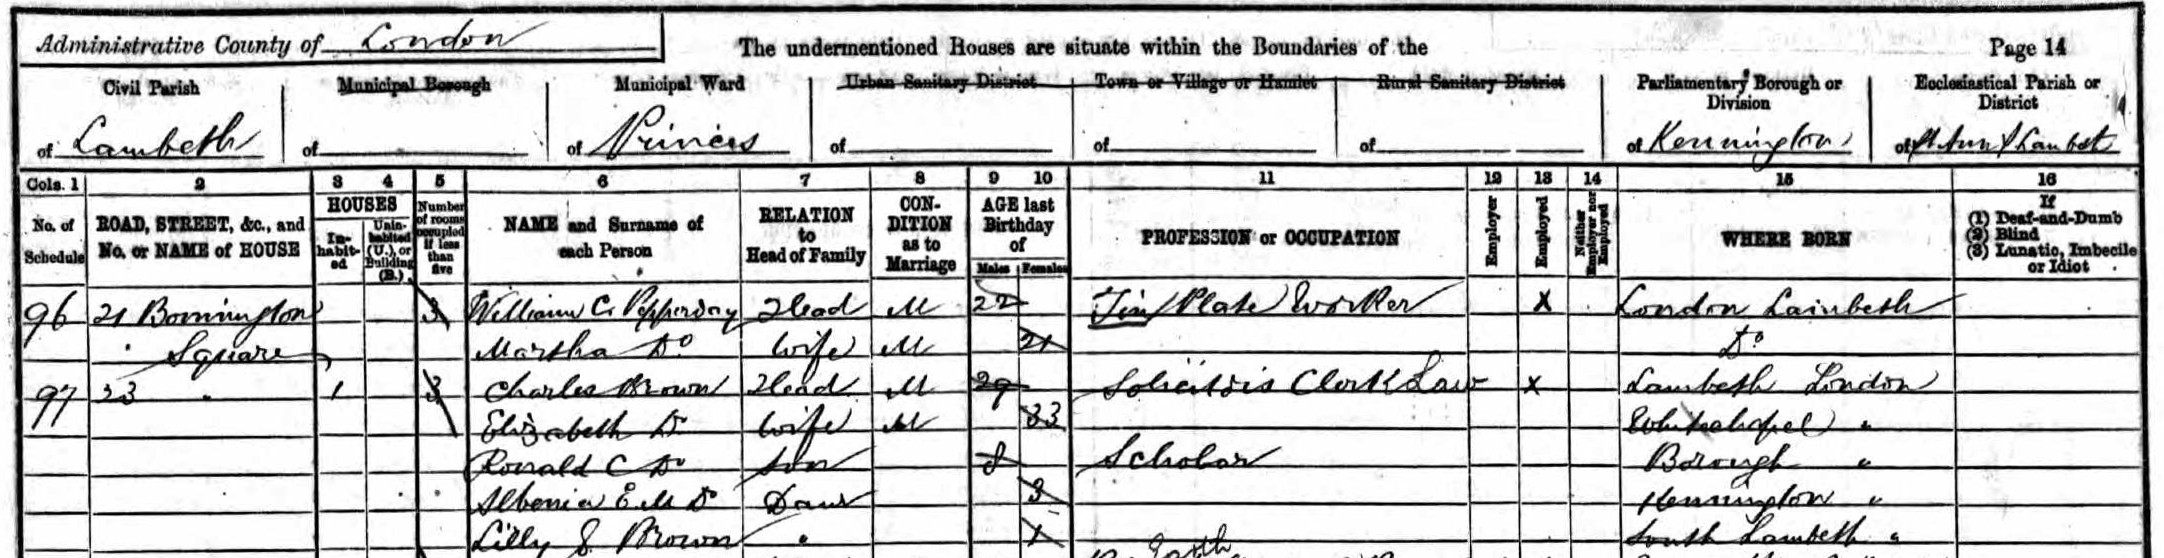 Administrative County of London
The undermentioned Houses are situate within the Boundaries of the
Page 14
Civil Parish of Lambeth
Municipal Borough of
Municipal Ward of Princes
Urban Sanitary District of
Town or Village or Hamlet of
Rural Sanitary District of
Parliamentary Borough or Division of Kennington
Ecclesiastical Parish or District of St Ann S Lambeth
Cols. 1 2 3 4 5 6 7 8 9 10 11 12 13 14 15 16
No. of Schedule
ROAD, STREET, &c., and No. or NAME of HOUSE
HOUSES
In-habit-ed
Unin-habited (U.), or Building (B.)
Number of rooms occupied if less than five
NAME and Surname of each Person
RELATION to Head of Family
CON-DITION as to Marriage
AGE last Birthday of
Males Females
PROFESSION or OCCUPATION
Employer
Employed
Neither Employer nor Employed
WHERE BORN
If
(1) Deaf-and-Dumb
(2) Blind
(3) Lunatic, Imbecile or Idiot
96 21 Bonnington 3 William C. Pepperday Head M 22 Tin Plate Worker X London Lambeth
" Square Martha Do Wife M 21 Do
97 23 " 1 3 Charles Brown Head M 29 Solicitors Clerk Law X Lambeth London
Elizabeth Do Wife M 33 Whitechapel "
Ronald C Do Son 8 Scholar Borough "
Albenia E M Do Daur 3 Kennington "
Lilly S Brown " 1 South Lambeth "